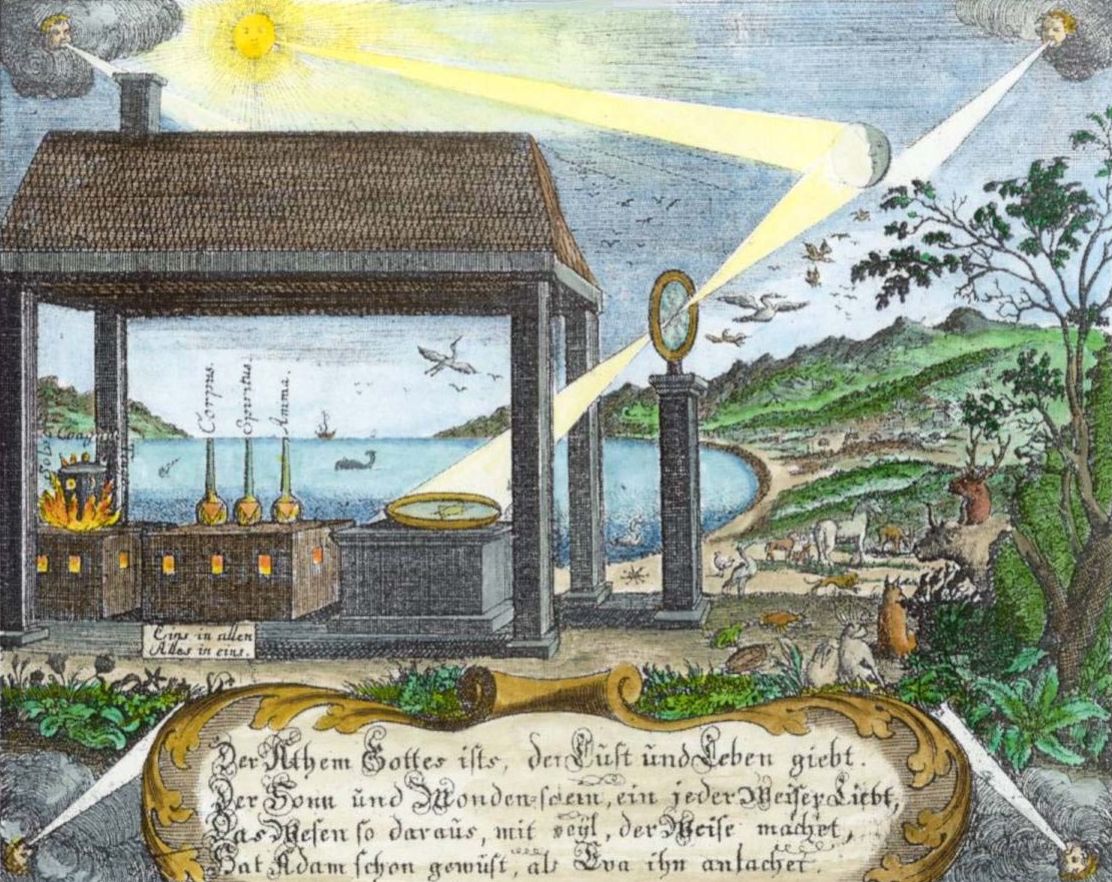 Corpus.
Spiritus.
Anima.
Eins in allen
Alles in eins.
Der Athem Gottes ists, der Lust und Leben giebt.
Der Sonn und Monden-schein, ein jeder Weiser Liebt,
Das Wesen so daraus, mit der Weise machet,
Hat Adam schon gewust, als Eva ihn anlachet.